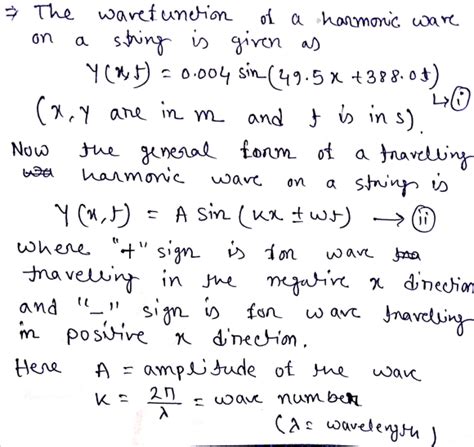 ⇒ The wavefunction of a harmonic wave
on a string is given as
Y(x,t) = 0.004 sin(49.5x + 388.0t)
↳ (i)
(x, y are in m and t is in s).
Now the general form of a travelling
harmonic wave on a string is
Y(x,t) = A sin(kx ± ωt) → (ii)
where "+" sign is for wave
travelling in the negative x direction
and "–" sign is for wave travelling
in positive x direction.
Here A = amplitude of the wave
K = 2π/λ = wave number
(λ = wavelength)